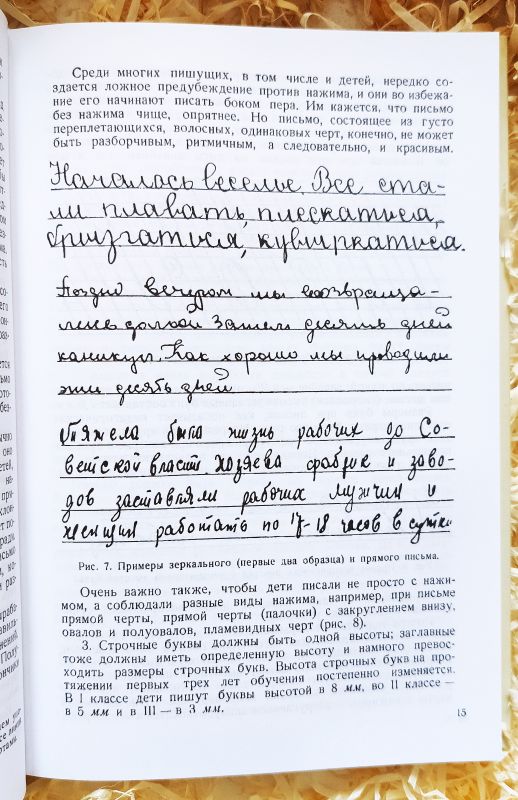 Среди многих пишущих, в том числе и детей, нередко со-
здается ложное предубеждение против нажима, и они во избежа-
ние его начинают писать боком пера. Им кажется, что письмо
без нажима чище, опрятнее. Но письмо, состоящее из густо
переплетающихся, волосных, одинаковых черт, конечно, не может
быть разборчивым, ритмичным, а следовательно, и красивым.
Началось веселье. Все ста-
ли плавать, плескаться,
брызгаться, кувыркаться.
Поздно вечером мы возвраща-
лись домой Затем десять дней
каникул. Как хорошо мы проводили
эти десять дней
Тяжела была жизнь рабочих до Со-
ветской власти. Хозяева фабрик и заво-
дов заставляли рабочих мужчин и
женщин работать по 17-18 часов в сутки
Рис. 7. Примеры зеркального (первые два образца) и прямого письма.
Очень важно также, чтобы дети писали не просто с нажи-
мом, а соблюдали разные виды нажима, например, при письме
прямой черты, прямой черты (палочки) с закруглением внизу,
овалов и полуовалов, пламевидных черт (рис. 8).
3. Строчные буквы должны быть одной высоты; заглавные
тоже должны иметь определенную высоту и намного превос-
ходить размеры строчных букв. Высота строчных букв на про-
тяжении первых трех лет обучения постепенно изменяется.
В I классе дети пишут буквы высотой в 8 мм, во II классе —
в 5 мм и в III — в 3 мм.
15